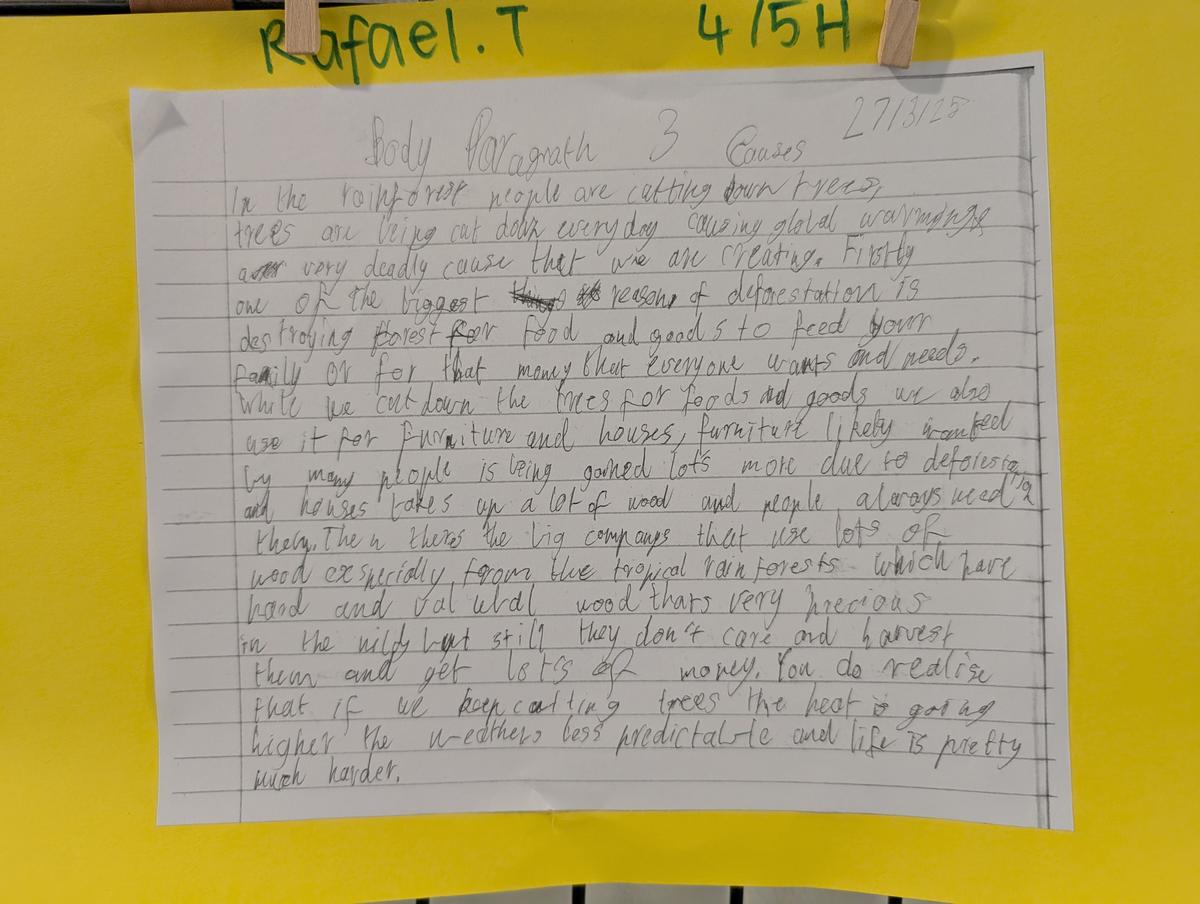 Rafael.T 4/5H
Body Paragraph 3 Causes 27/3/25
In the rainforest people are cutting down trees,
trees are being cut down everyday causing global warming
a very deadly cause that we are creating. Firstly
one of the biggest reason of deforestation is
destroying forest for food and goods to feed your
family or for that money that everyone wants and needs.
While we cut down the trees for foods and goods we also
use it for furniture and houses, furniture likely wanted
by many people is being gained lots more due to deforesta
and houses takes up a lot of wood and people always need
them. Then theres the big companys that use lots of
wood exspecially from the tropical rainforests which have
hard and wood thats very precious
in the wild but still they don't care and harvest
them and get lots of money. You do realise
that if we keep cutting trees the heat is going
higher the weathers less predictable and life is pretty
much harder.